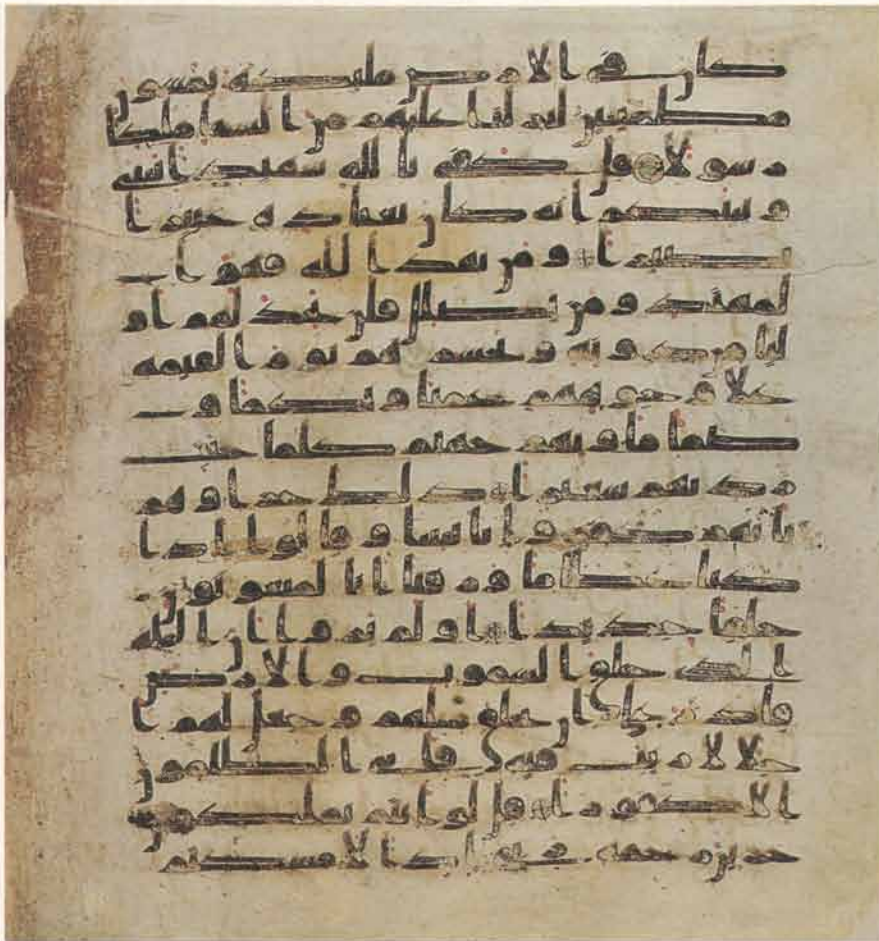 كان في الارض مليكه يمشون
مطمينين لنزلنا عليهم من السما ملكا
رسولا قل كفى بالله شهيدا بيني
وبينكم انه كان بعباده خبيرا
بصيرا ومن يهد الله فهو ا
لمهتد ومن يضلل فلن تجد لهم او
ليا من دونه ونحشرهم يوم القيمه
على وجوههم عميا وبكما و
صما ماويهم جهنم كلما خبت
زدنهم سعيرا ذلك جزاوهم
بانهم كفروا بايتنا وقالوا اذا
كنا عظاما ورفتا انا لمبعوثون
خلقا جديدا اولم يروا ان الله
الذي خلق السموت والارض
قادر على ان يخلق مثلهم وجعل لهم ا
جلا لا ريب فيه فابى الظلمون
الا كفورا قل لو انتم تملكون
خزاين رحمه ربي اذا لامسكتم